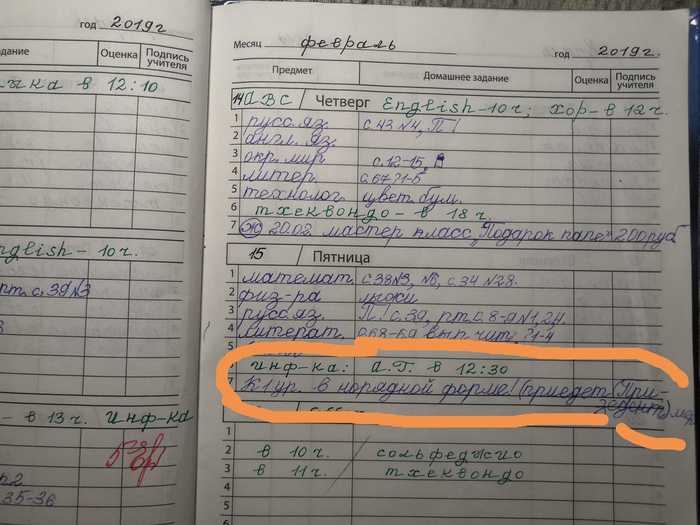 год 2019г
дание Оценка Подпись учителя
ика в 12:10
nglish- 10 ч.
рт. с. 39 №3
- в 13 ч. инф-ка
р2
35-36
Месяц февраль год 2019г.
Предмет Домашнее задание Оценка Подпись учителя
14 АВС Четверг English-10 ч; хор-в 12 ч.
1 русс. яз. с.43 №4, П!
2 англ. яз.
3 окр. мир с.12-15,
4 литер. с.67 ?1-5
5 технолог. цвет. бум.
6 тхеквондо - в 18 ч.
7 20.02. мастер класс „Подарок папе" 200руб
15 Пятница
1 математ. с 33№3, №5, с.34 №28.
2 физ-ра лыжи
3 русс. яз. П! с.39, рт с.8-9 №1,24.
4 литерат. с.68-69 выр. чит. ?1-4
5
инф-ка: А.Г. в 12:30
7 К 1 ур. в норядной форме! (приедет (При-
зедент) мэр
2 в 10 ч. сольфеджио
3 в 11 ч. тхеквондо
4
5
6